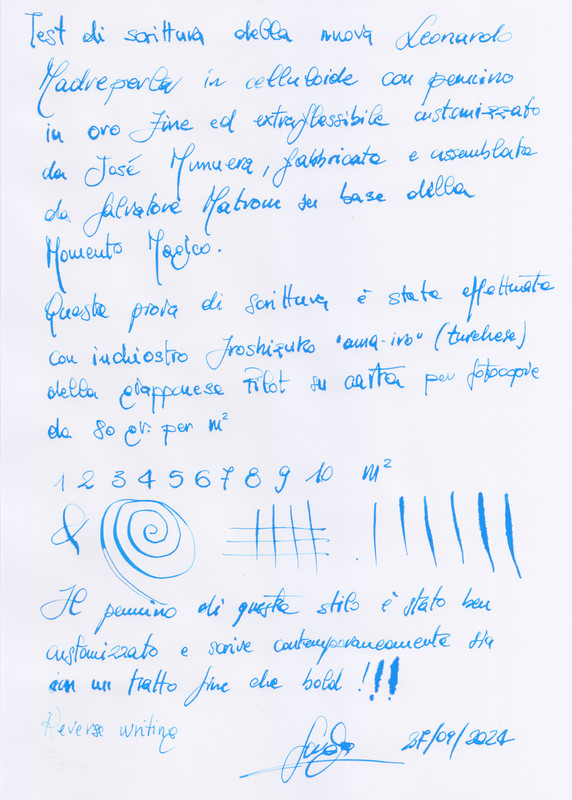 Test di scrittura della nuova Leonardo
Madreperla in celluloide con pennino
in oro Fine ed extraflessibile customizzato
da José Munuera, fabbricata e assemblata
da Salvatore Matrone su base della
Momento Magico.
Questa prova di scrittura è stata effettuata
con inchiostro Iroshizuko "ama-iro" (turchese)
della giapponese Pilot su carta per fotocopie
da 80 gr. per m²
1 2 3 4 5 6 7 8 9 10 m²
&
Il pennino di questa stilo è stato ben
customizzato e scrive contemporaneamente sia
con un tratto fine che bold !!!!
Reverse writing
27/09/2021